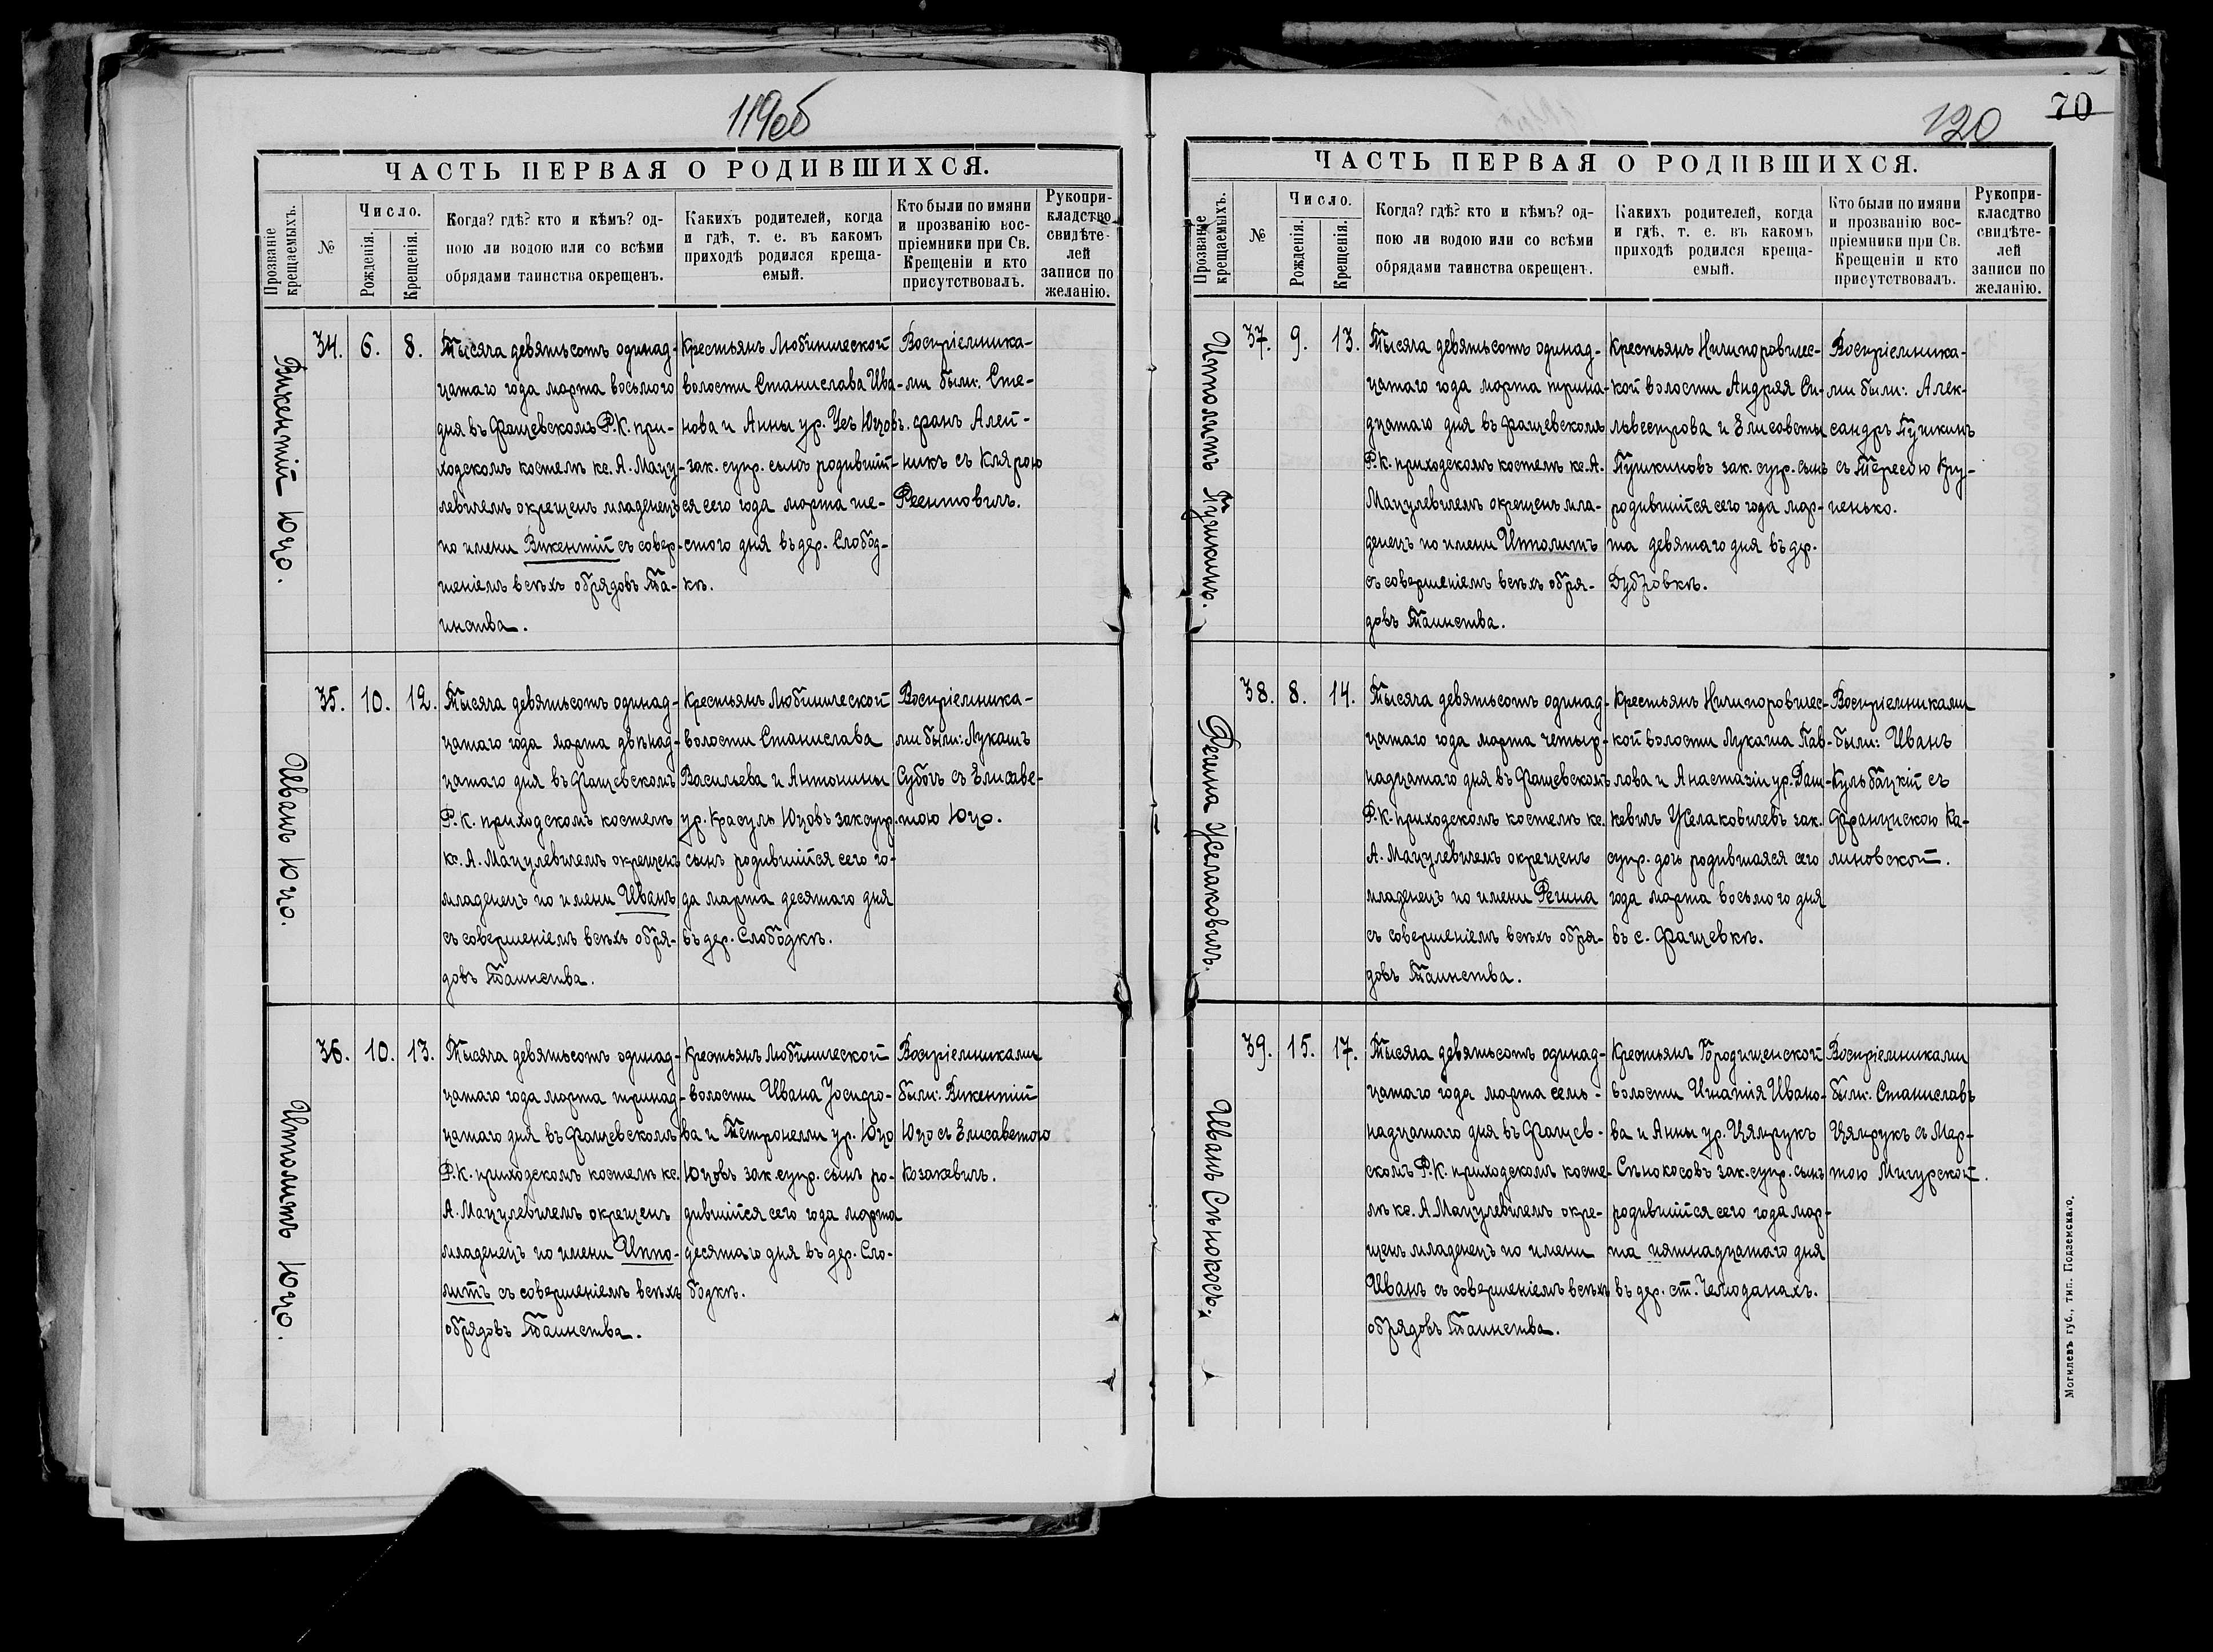 119об
ЧАСТЬ ПЕРВАЯ О РОДИВШИХСЯ.
Прозваніе крещаемыхъ.
№
Число.
Рожденія.
Крещенія.
Когда? гдѣ? кто и кѣмъ? од-
ною ли водою или со всѣми
обрядами таинства окрещенъ.
Какихъ родителей, когда
и гдѣ, т. е. въ какомъ
приходѣ родился креща-
емый.
Кто были по имяни
и прозванію вос-
пріемники при Св.
Крещеніи и кто
присутствовалъ.
Рукопри-
кладство
свидѣте-
лей
записи по
желанію.
Викентій Юцо.
34.
6.
8.
Тысяча девятьсотъ одинад-
цатаго года марта восьмого
дня въ Фащевскомъ Р.К. при-
ходскомъ костелѣ кс. А. Мацу-
левичемъ окрещенъ младенецъ
по имени Викентій съ совер-
шеніемъ всѣхъ обрядовъ Та-
инства.
Крестьянъ Любинической
волости Станислава Ива-
нова и Анны ур. Усъ Юцовъ
зак. супр. сынъ родивший-
ся сего года марта ше-
стого дня въ дер. Слобод-
кѣ.
Воспріемника-
ми были: Сте-
фанъ Алей-
никъ съ Клярою
Реентовичъ.
Иванъ Юцо.
35.
10.
12.
Тысяча девятьсотъ одинад-
цатаго года марта двѣнад-
цатаго дня въ Фащевскомъ
Р.К. приходскомъ костелѣ
кс. А. Мацулевичемъ окрещенъ
младенецъ по имени Иванъ
съ совершеніемъ всѣхъ обря-
довъ Таинства.
Крестьянъ Любинической
волости Станислава
Васильева и Антонины
ур. Красуль Юцовъ зак. супр.
сынъ родившійся сего го-
да марта десятаго дня
въ дер. Слободкѣ.
Воспріемника-
ми были: Лукашъ
Суботь съ Елисаве-
тою Юцо.
Ипполитъ Юцо.
36.
10.
13.
Тысяча девятьсотъ одинад-
цатаго года марта тринад-
цатаго дня въ Фащевскомъ
Р.К. приходскомъ костелѣ кс.
А. Мацулевичемъ окрещенъ
младенецъ по имени Иппо-
литъ съ совершеніемъ всѣхъ
обрядовъ Таинства.
Крестьянъ Любинической
волости Ивана Іосифо-
ва и Петронели ур. Юцо
Юцовъ зак. супр. сынъ ро-
дившійся сего года марта
десятаго дня въ дер. Сло-
бодкѣ.
Воспріемниками
были: Викентій
Юцо съ Елисаветою
Козакевичъ.
120
70
ЧАСТЬ ПЕРВАЯ О РОДИВШИХСЯ.
Прозваніе крещаемыхъ.
№
Число.
Рожденія.
Крещенія.
Когда? гдѣ? кто и кѣмъ? од-
ною ли водою или со всѣми
обрядами таинства окрещенъ.
Какихъ родителей, когда
и гдѣ, т. е. въ какомъ
приходѣ родился креща-
емый.
Кто были по имяни
и прозванію вос-
пріемники при Св.
Крещеніи и кто
присутствовалъ.
Рукопри-
класдтво
свидѣте-
лей
записи по
желанію.
Ипполитъ Пушкинъ.
37.
9.
13.
Тысяча девятьсотъ одинад-
цатаго года марта трина-
дцатаго дня въ Фащевскомъ
Р.К. приходскомъ костелѣ кс. А.
Мацулевичемъ окрещенъ мла-
денецъ по имени Ипполитъ
съ совершеніемъ всѣхъ обря-
довъ Таинства.
Крестьянъ Ничипоровичес-
кой волости Андрея Си-
львестрова и Елисаветы
Пушкиновъ зак. супр. сынъ
родившійся сего года мар-
та девятаго дня въ дер.
Дубровкѣ.
Воспріемника-
ми были: Алек-
сандръ Пушкинъ
съ Тересою Кру-
ченько.
Регина Жслаковичъ.
38.
8.
14.
Тысяча девятьсотъ одинад-
цатаго года марта четыр-
надцатаго дня въ Фащевскомъ
Р.К. приходскомъ костелѣ кс.
А. Мацулевичемъ окрещенъ
младенецъ по имени Регина
съ совершеніемъ всѣхъ обря-
довъ Таинства.
Крестьянъ Ничипоровичес-
кой волости Лукаша Пав-
лова и Анастазіи ур. Даш-
кевичъ Жслаковичевъ зак.
супр. дочь родившаяся сего
года марта восьмого дня
въ с. Фащевкѣ.
Воспріемниками
были: Иванъ
Кульбацкій съ
Францискою Ка-
линовской.
Иванъ Сѣнокосъ.
39.
15.
17.
Тысяча девятьсотъ одинад-
цатаго года марта семь-
надцатаго дня въ Фащев-
скомъ Р.К. приходскомъ косте-
лѣ кс. А. Мацулевичемъ окре-
щенъ младенецъ по имени
Иванъ съ совершеніемъ всѣхъ
обрядовъ Таинства.
Крестьянъ Городищенской
волости Игнатія Ивано-
ва и Анны ур. Цямрукъ
Сѣнокосовъ зак. супр. сынъ
родившійся сего года мар-
та пятнадцатаго дня
въ дер. ст. Чемоданахъ.
Воспріемниками
были: Станиславъ
Цямрукъ съ Мар-
тою Мигурской.
Могилевъ губ., тип. Подземскаго.